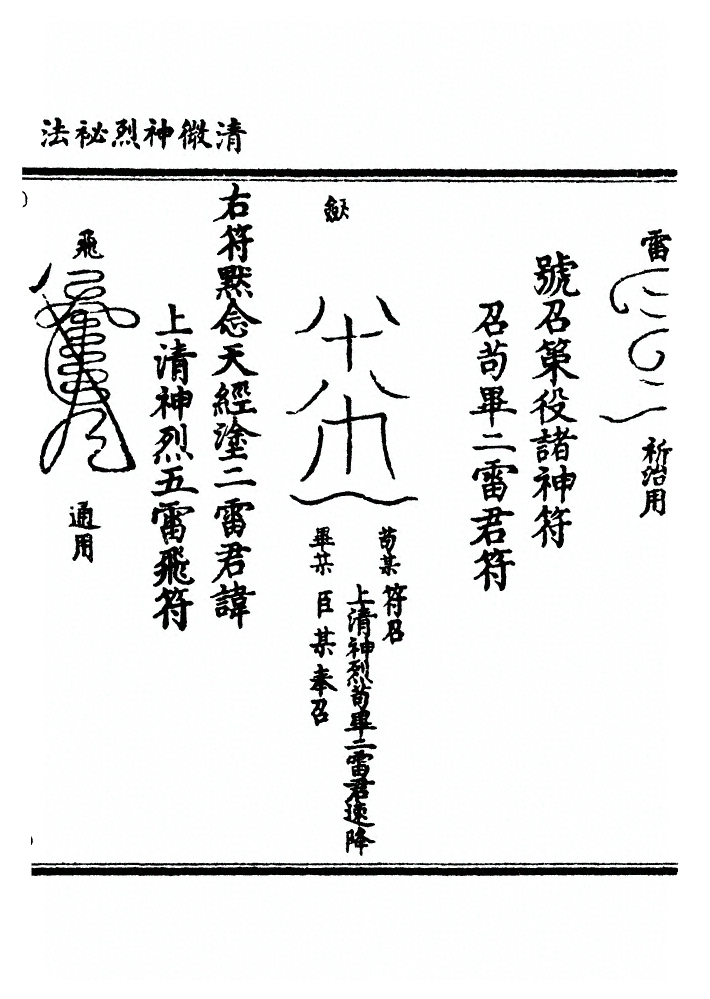 清微神烈祕法
雷
祈治用
號召策役諸神符
召苟畢二雷君符
敕
苟某
畢某
符召
上清神烈苟畢二雷君速降
臣某奉召
右符黙念天經塗二雷君諱
上清神烈五雷飛符
飛
通用